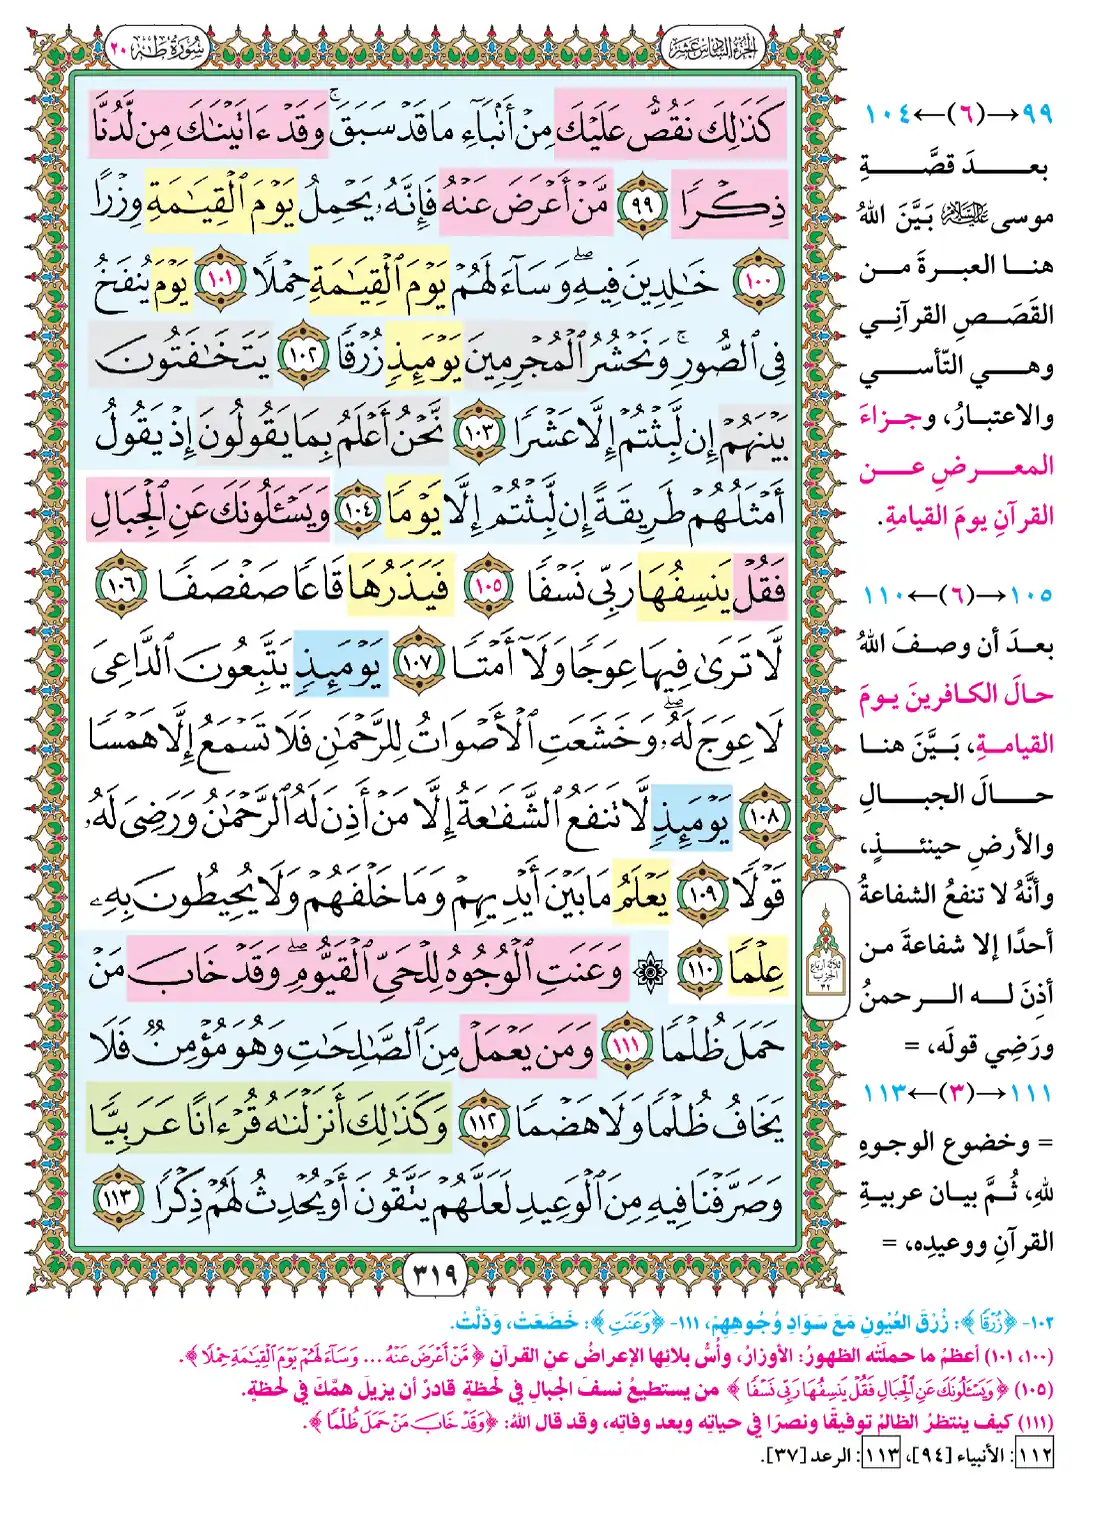 الجزء السادس عشر
سورة طه ٢٠
كَذَٰلِكَ نَقُصُّ عَلَيْكَ مِنْ أَنۢبَآءِ مَا قَدْ سَبَقَ ۚ وَقَدْ ءَاتَيْنَٰكَ مِن لَّدُنَّا
ذِكْرًا ٩٩ مَّنْ أَعْرَضَ عَنْهُ فَإِنَّهُۥ يَحْمِلُ يَوْمَ ٱلْقِيَٰمَةِ وِزْرًا
١٠٠ خَٰلِدِينَ فِيهِ ۖ وَسَآءَ لَهُمْ يَوْمَ ٱلْقِيَٰمَةِ حِمْلًا ١٠١ يَوْمَ يُنفَخُ
فِى ٱلصُّورِ ۚ وَنَحْشُرُ ٱلْمُجْرِمِينَ يَوْمَئِذٍ زُرْقًا ١٠٢ يَتَخَٰفَتُونَ
بَيْنَهُمْ إِن لَّبِثْتُمْ إِلَّا عَشْرًا ١٠٣ نَّحْنُ أَعْلَمُ بِمَا يَقُولُونَ إِذْ يَقُولُ
أَمْثَلُهُمْ طَرِيقَةً إِن لَّبِثْتُمْ إِلَّا يَوْمًا ١٠٤ وَيَسْـَٔلُونَكَ عَنِ ٱلْجِبَالِ
فَقُلْ يَنسِفُهَا رَبِّى نَسْفًا ١٠٥ فَيَذَرُهَا قَاعًا صَفْصَفًا ١٠٦
لَّا تَرَىٰ فِيهَا عِوَجًا وَلَآ أَمْتًا ١٠٧ يَوْمَئِذٍ يَتَّبِعُونَ ٱلدَّاعِىَ
لَا عِوَجَ لَهُۥ ۖ وَخَشَعَتِ ٱلْأَصْوَاتُ لِلرَّحْمَٰنِ فَلَا تَسْمَعُ إِلَّا هَمْسًا
١٠٨ يَوْمَئِذٍ لَّا تَنفَعُ ٱلشَّفَٰعَةُ إِلَّا مَنْ أَذِنَ لَهُ ٱلرَّحْمَٰنُ وَرَضِىَ لَهُۥ
قَوْلًا ١٠٩ يَعْلَمُ مَا بَيْنَ أَيْدِيهِمْ وَمَا خَلْفَهُمْ وَلَا يُحِيطُونَ بِهِۦ
عِلْمًا ١١٠ ۞ وَعَنَتِ ٱلْوُجُوهُ لِلْحَىِّ ٱلْقَيُّومِ ۖ وَقَدْ خَابَ مَنْ
حَمَلَ ظُلْمًا ١١١ وَمَن يَعْمَلْ مِنَ ٱلصَّٰلِحَٰتِ وَهُوَ مُؤْمِنٌ فَلَا
يَخَافُ ظُلْمًا وَلَا هَضْمًا ١١٢ وَكَذَٰلِكَ أَنزَلْنَٰهُ قُرْءَانًا عَرَبِيًّا
وَصَرَّفْنَا فِيهِ مِنَ ٱلْوَعِيدِ لَعَلَّهُمْ يَتَّقُونَ أَوْ يُحْدِثُ لَهُمْ ذِكْرًا ١١٣
٣١٩
ثلاثة أرباع
الحزب
٣٢
٩٩→(٦)←١٠٤
بعدَ قصَّةِ
موسى عليه السلام بَيَّنَ اللهُ
هنا العبرةَ من
القَصَصِ القرآنِي
وهي التّأسي
والاعتبارُ، وجزاءَ
المعرضِ عن
القرآنِ يومَ القيامةِ.
١٠٥→(٦)←١١٠
بعدَ أن وصفَ اللهُ
حالَ الكافرينَ يومَ
القيامةِ، بَيَّنَ هنا
حالَ الجبالِ
والأرضِ حينئذٍ،
وأنَّهُ لا تنفعُ الشفاعةُ
أحدًا إلا شفاعةَ من
أذِنَ له الرحمنُ
ورَضِي قولَه، =
١١١→(٣)←١١٣
= وخضوع الوجوهِ
للهِ، ثُمَّ بيان عربيةِ
القرآنِ ووعيدِه، =
١٠٢- ﴿زُرْقًا﴾: زُرْقَ العُيُونِ مَعَ سَوَادِ وُجُوهِهِمْ، ١١١- ﴿وَعَنَتِ﴾: خَضَعَتْ، وَذَلَّتْ.
(١٠٠، ١٠١) أعظمُ ما حملَته الظهورُ: الأوزارُ، وأُسُّ بلائِها الإعراضُ عنِ القرآنِ ﴿مَّنْ أَعْرَضَ عَنْهُ ... وَسَآءَ لَهُمْ يَوْمَ ٱلْقِيَٰمَةِ حِمْلًا﴾.
(١٠٥) ﴿وَيَسْـَٔلُونَكَ عَنِ ٱلْجِبَالِ فَقُلْ يَنسِفُهَا رَبِّى نَسْفًا﴾ من يستطيعُ نسفَ الجبالِ في لحظةٍ قادرٌ أن يزيلَ همَّكَ في لحظةٍ.
(١١١) كيف ينتظرُ الظالمُ توفيقًا ونصرًا في حياتِه وبعد وفاتِه، وقد قال اللهُ: ﴿وَقَدْ خَابَ مَنْ حَمَلَ ظُلْمًا﴾.
١١٢: الأنبياء [٩٤]، ١١٣: الرعد [٣٧].